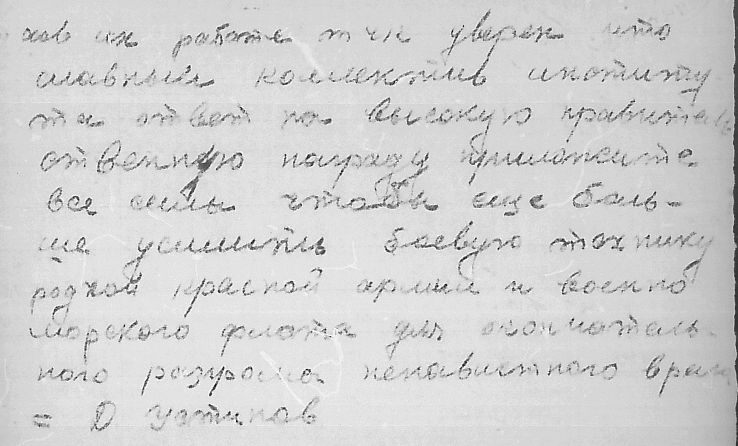 хов их работе тчк уверен что
славный коллектив институ-
та ответ на высокую правитель
ственную награду приложите
все силы чтобы еще боль-
ше усилить боевую технику
родной красной армии и военно
морского флота для окончатель-
ного разгрома ненавистного врага
= Д Устинов